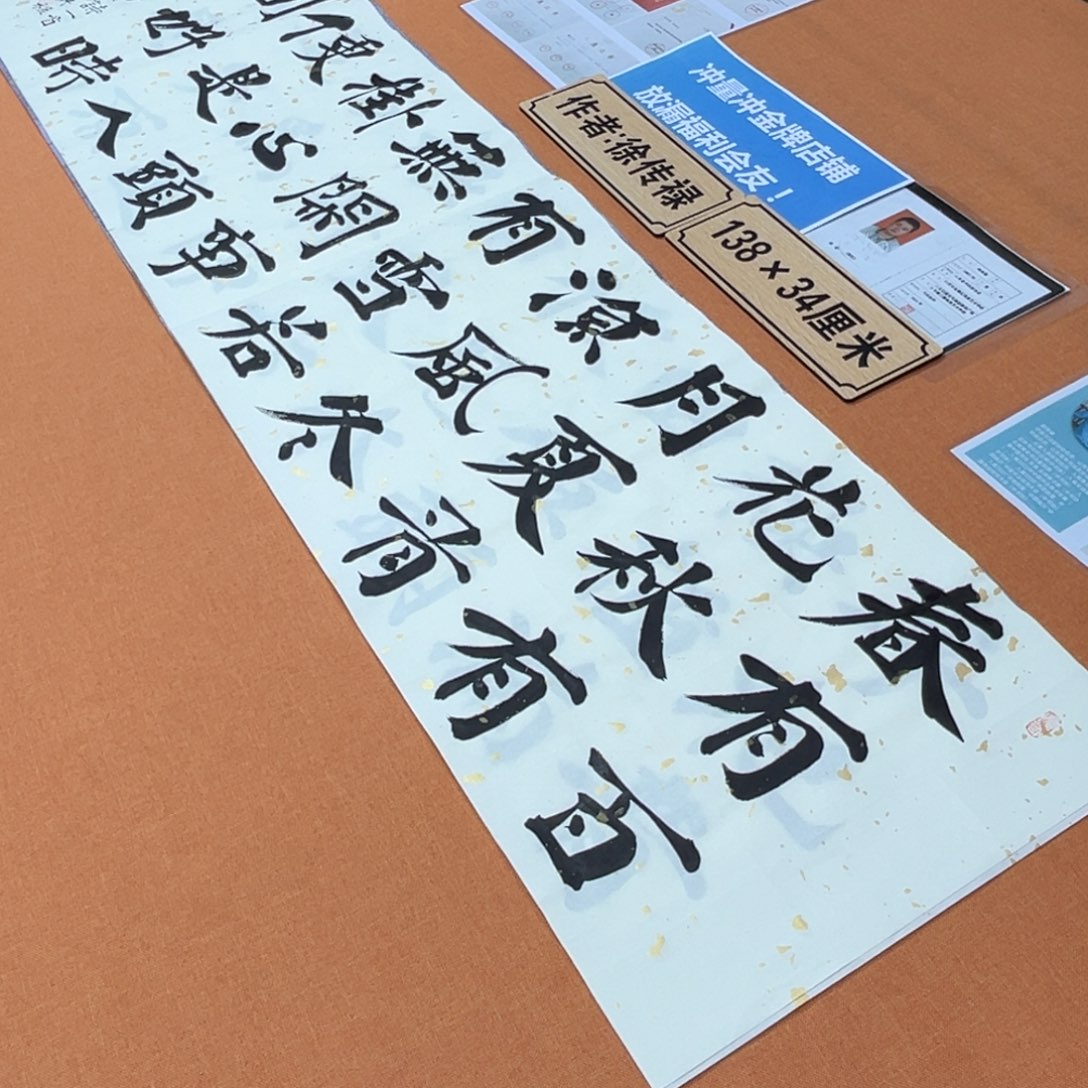 春有百
花秋有
月夏有
涼風冬
有雪若
無閑事
掛心頭
便是人
好時
冲量冲金牌店铺
放漏福利会友！
作者:徐传禄
138×34厘米